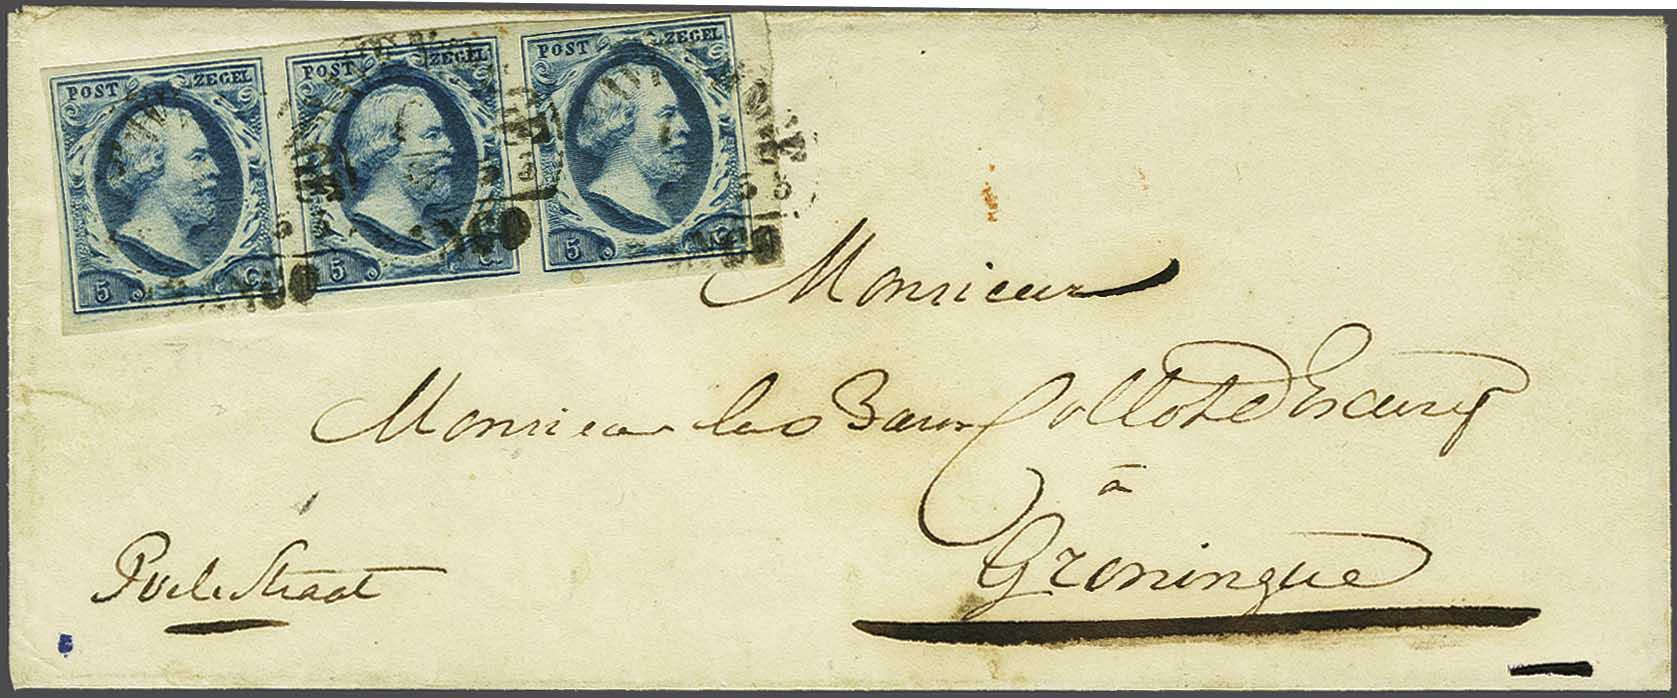 POST ZEGEL POST ZEGEL POST ZEGEL
5 C. 5 C. 5 C.
FRANCO FRANCO FRANCO
Monsieur
Monsieur le Baron Collot d'Escury
à
Groningue
Poelestraat